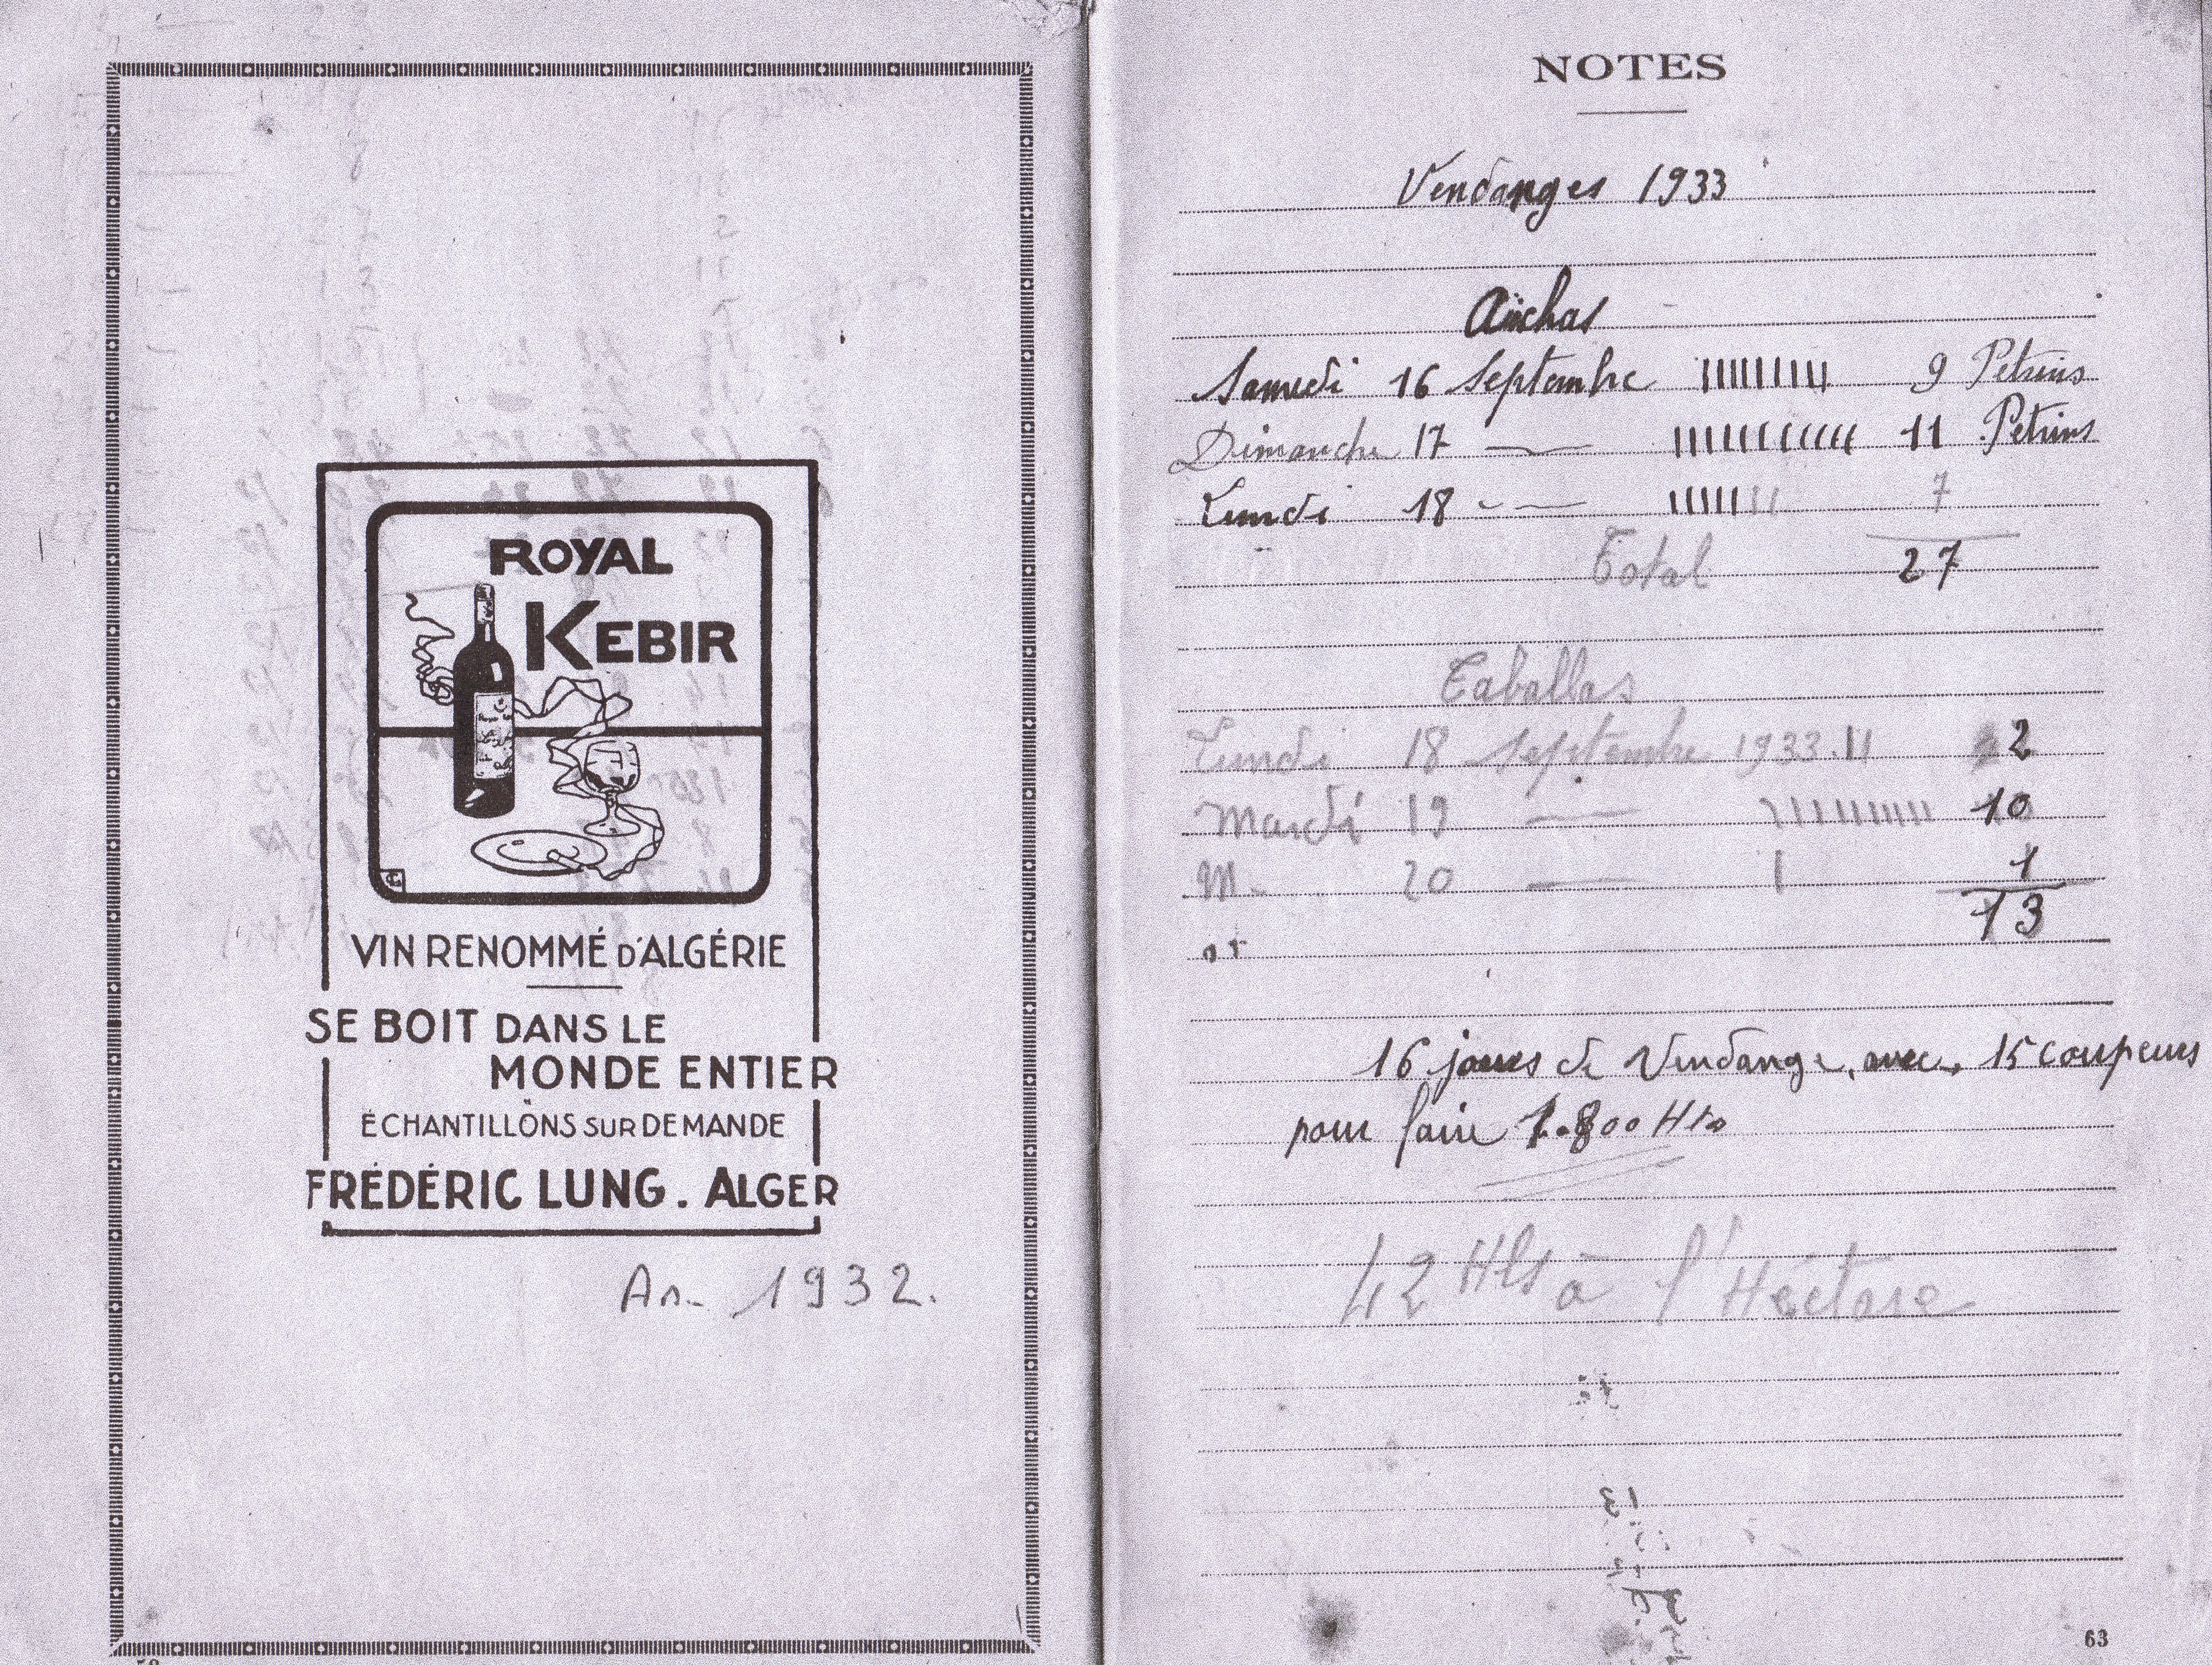 ROYAL
KEBIR
VIN RENOMMÉ D'ALGÉRIE
SE BOIT DANS LE
MONDE ENTIER
ÉCHANTILLONS SUR DEMANDE
FRÉDÉRIC LUNG. ALGER
An. 1932.
NOTES
Vendanges 1933
Aïchas
Samedi 16 Septembre IIIIIIIII 9 Petrins
Dimanche 17 — IIIIIIIIIII 11 Petrins
Lundi 18 - — IIIIIII 7
Total 27
Caballas
Lundi 18 Septembre 1933. II 2
Mardi 19 — IIIIIIIIII 10
M - 20 — I 1
13
16 jours de Vendange, avec 15 coupeurs
pour faire 1.800 Hls
42 Hls à l'Héctare
63